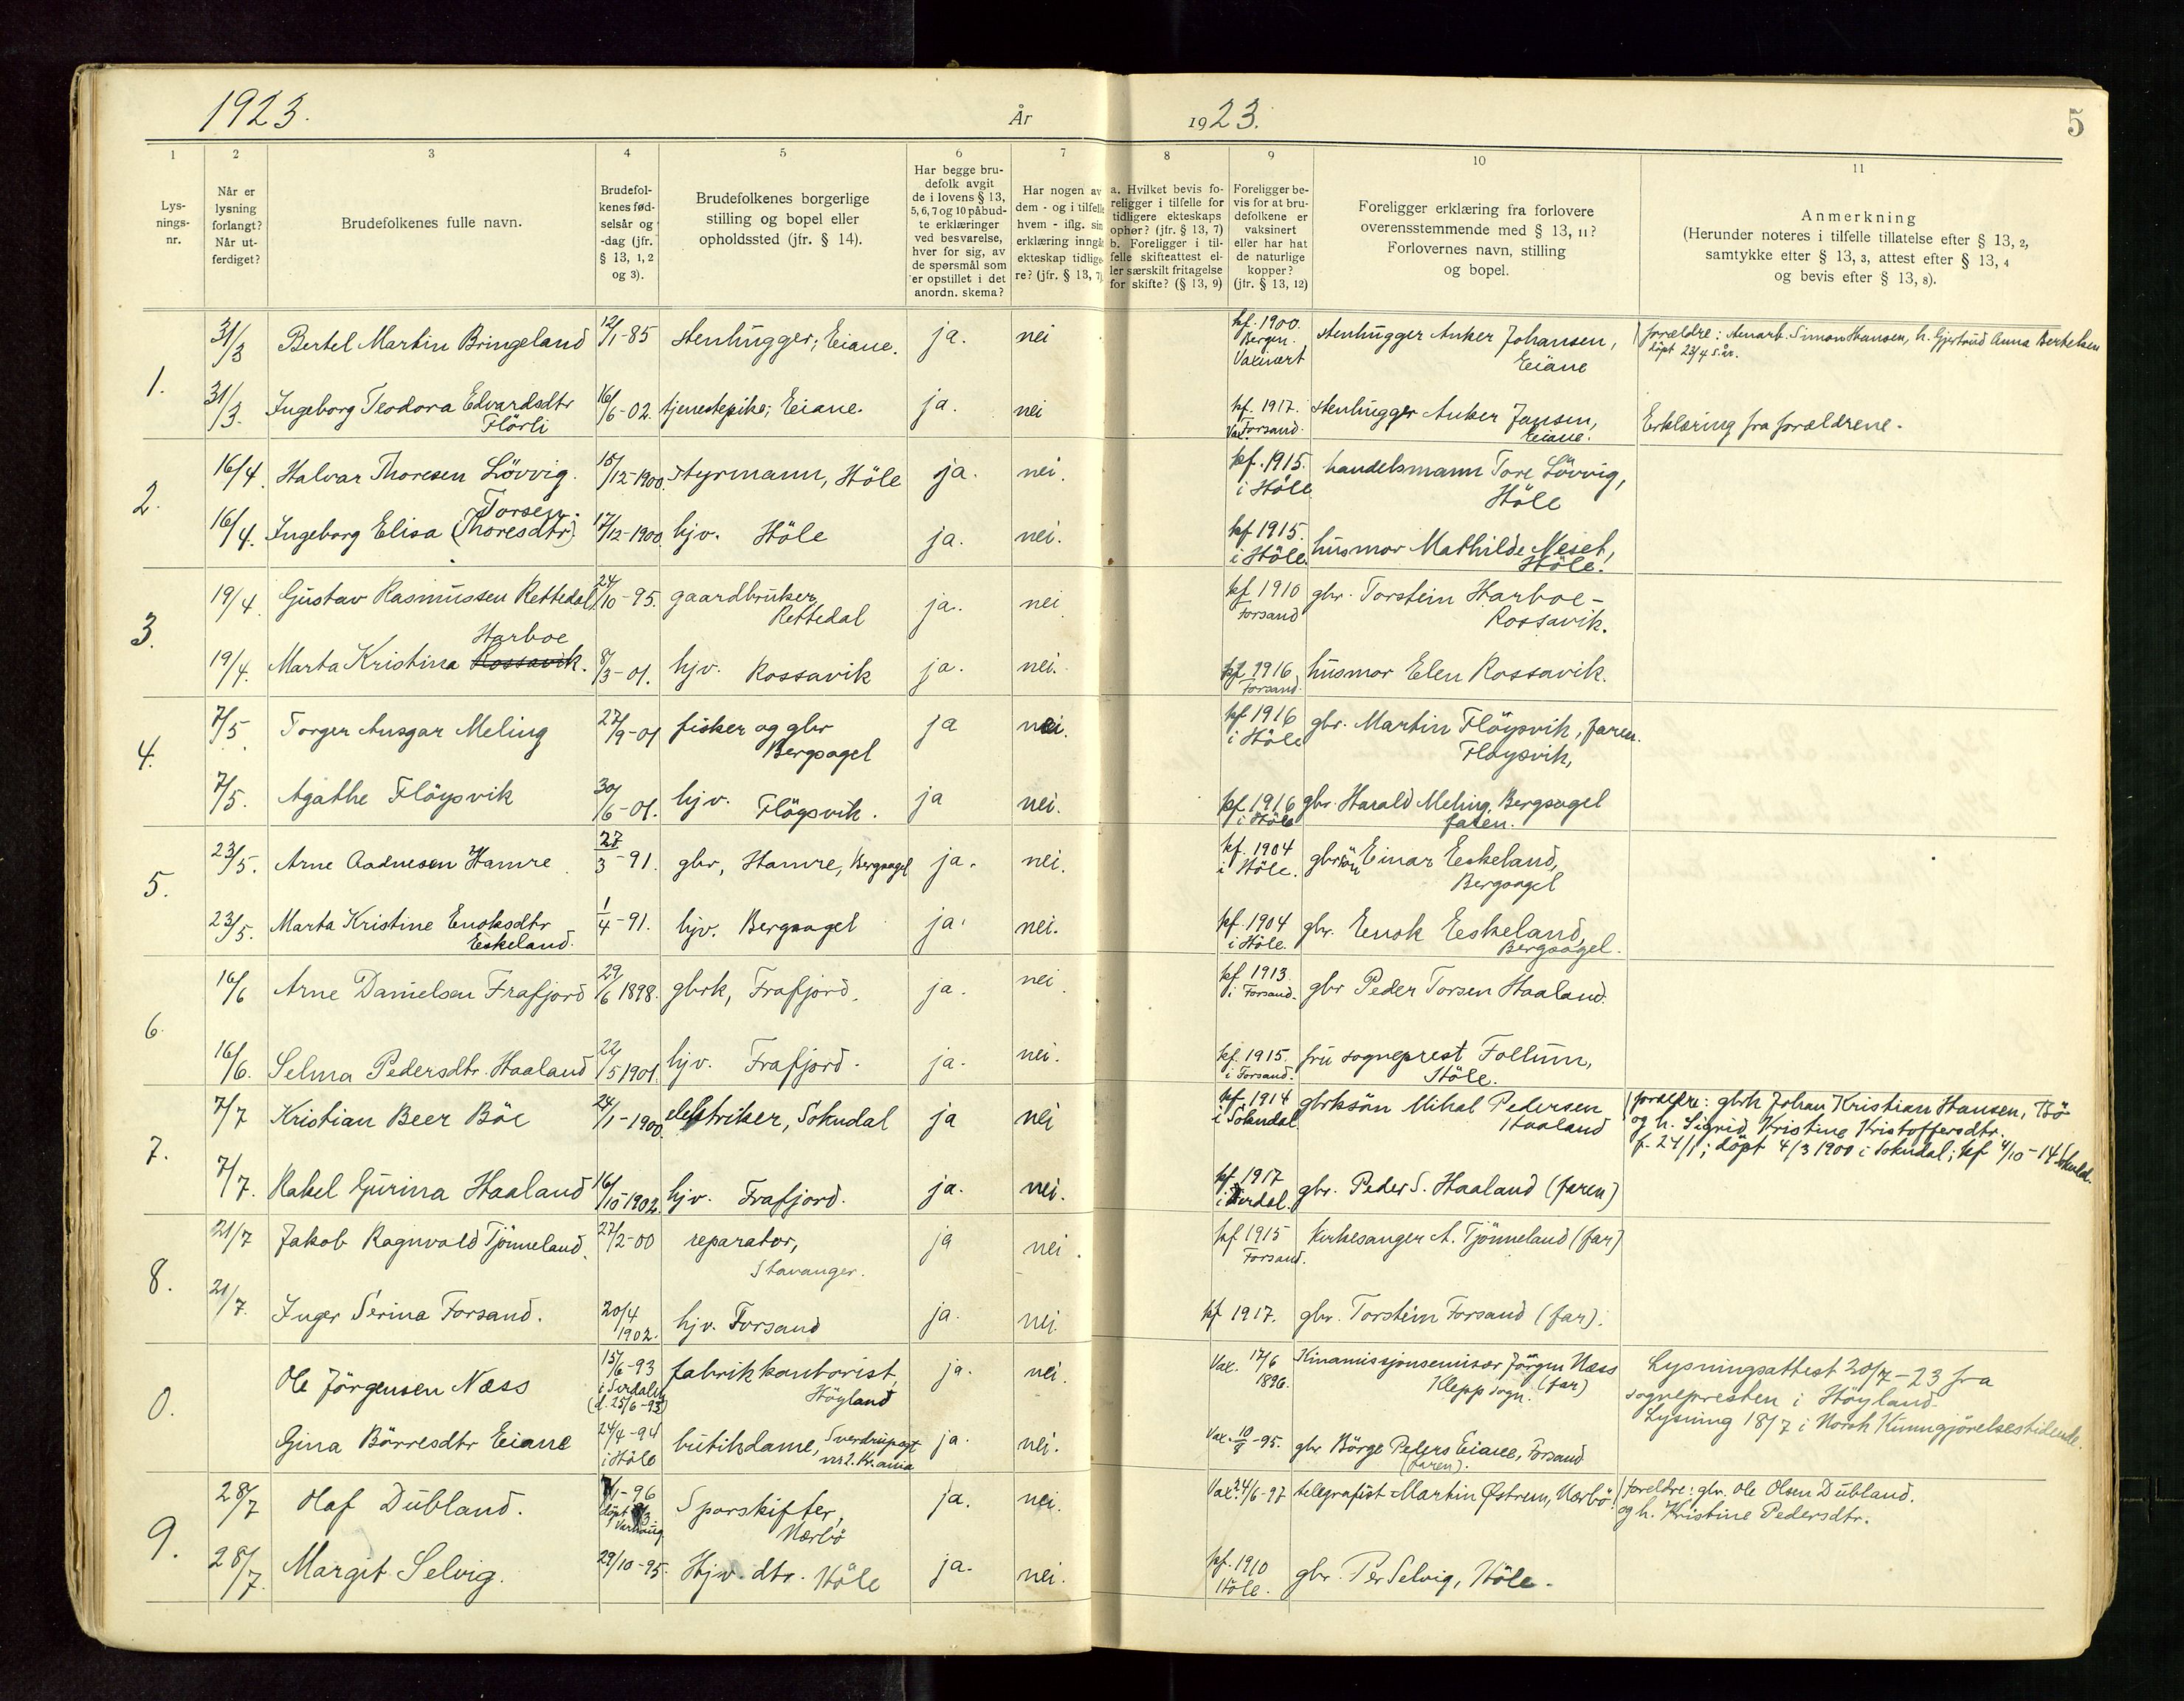 1923.
År
1923.
5
1
2
3
4
5
6
7
8
9
10
11
Lys-
nings-
nr.
Når er
lysning
forlangt?
Når ut-
ferdiget?
Brudefolkenes fulle navn.
Brudefol-
kenes fød-
selsår og
-dag (jfr.
§ 13, 1, 2
og 3).
Brudefolkenes borgerlige
stilling og bopel eller
opholdssted (jfr. § 14).
Har begge bru-
defolk avgit
de i lovens § 13,
5, 6, 7 og 10 påbud-
te erklæringer
ved besvarelse,
hver for sig, av
de spørsmål som
er opstillet i det
anordn. skema?
Har nogen av
dem - og i tilfelle
hvem - iflg. sin
erklæring inngå
ekteskap tidlige-
re? (jfr. § 13, 7)
a. Hvilket bevis fo-
religger i tilfelle for
tidligere ekteskaps
ophør? (jfr. § 13, 7)
b. Foreligger i til-
felle skifteattest el-
ler særskilt fritagelse
for skifte? (§ 13, 9)
Foreligger be-
vis for at bru-
defolkene er
vaksinert
eller har hat
de naturlige
kopper?
(jfr. § 13, 12)
Foreligger erklæring fra forlovere
overensstemmende med § 13, 11?
Forlovernes navn, stilling
og bopel.
Anmerkning
(Herunder noteres i tilfelle tillatelse efter § 13, 2,
samtykke efter § 13, 3, attest efter § 13, 4
og bevis efter § 13, 8).
1.
31/3 Bertel Martin Bringeland 12/1-85 stenhugger; Eiane. ja. nei kf. 1900. Bergen. Vaxinert stenhugger Anker Johansen, Eiane forældre: stenarb. Simon Hansen, h. Gjertrud Anna Bertelsen
döpt 23/4 s. år.
31/3. Ingeborg Teodora Edvardsdtr Flörli 16/6-02. tjenestepike; Eiane. ja. nei kf. 1917. Forsand. Vax. stenhugger Anker Jansen, Eiane. Erklæring fra forældrene.
2.
16/4. Halvar Thoresen Lövvig. 15/12-1900. styrmann, Höle ja. nei. kf. 1915. i Höle handelsmann Tore Lövvig, Höle
16/4. Ingeborg Elisa (Thoresdtr) Torsen. 17/12-1900 hjv. Höle ja. nei. kf 1915. i Höle. husmor Mathilde Neset, Höle.
3.
19/4. Gustav Rasmussen Rettedal 24/10-95. gaardbruker Rettedal ja. nei kf 1910 Forsand gbr. Torstein Harboe - Rossavik.
19/4. Marta Kristina Rossavik. Harboe 8/3-01. hjv. Rossavik ja. nei. kf 1916 Forsand. husmor Elen Rossavik.
4.
7/5 Torger Ansgar Meling 27/9-01 fisker og gbr Bergsagel ja nei. kf 1916 i Höle gbr. Martin Flöysvik, faren. Flöysvik,
7/5. Agathe Flöysvik 30/6-01. hjv. Flöysvik. ja nei. kf. 1916 i Höle gbr. Harald Meling, Bergsagel faren.
5.
23/5. Arne Aadnesen Hamre 27/3-91. gbr, Hamre, Bergsagel ja. nei. kf. 1904 i Höle. gbrsön Einar Eskeland, Bergsagel
23/5. Marta Kristine Enoksdtr Eskeland. 1/4-91. hjv. Bergsagel ja. nei. kf. 1904 i Höle. gbr. Enok Eskeland, Bergsagel.
6.
16/6 Arne Danielsen Frafjord 29/6 1898. gbrk, Frafjord. ja. nei kf 1913. i Forsand. gbr Peder Torsen Haaland.
16/6. Selma Pedersdtr. Haaland 22/5 1901. hjv. Frafjord. ja. nei. kf. 1915. i Forsand. fru sogneprest Follum, Höle.
7.
7/7 Kristian Beer Böe 24/1-1900. elektriker, Sokndal ja nei kf. 1914 i Sokndal. gbrksön Mikal Pedersen Haaland forældre: gbrk Johan Kristian Hansen, Bö
og h. Sigrid Kristine Kristoffersdtr.
f. 24/1; döpt 4/3 1900 i Sokndal; kf 4/10-14 Sokndal.
7/7. Rakel Gurina Haaland 16/10 1902. hjv. Frafjord. ja. nei. kf. 1917 i Dirdal. gbr. Peder S. Haaland (faren)
8.
21/7 Jakob Ragnvald Tjönneland. 27/2-00 reparatør, Stavanger. ja nei. kf 1915 Forsand. kirkesanger A. Tjönneland (far)
21/7. Inger Serina Forsand. 20/4 1902. hjv. Forsand ja. nei. kf 1917. gbr. Torstein Forsand (far).
0.
Ole Jörgensen Næss 15/6-93 i Sirdalen (d. 25/6-93) fabrikkontorist, Höyland ja. nei. Vax. 17/6 1896. Kinamissjonsemisær Jörgen Næss Klepp sogn. (far) Lysningsattest 20/7-23 fra
sognepresten i Höyland.
Lysning 18/7 i Norsk Kunngjörelsestidende.
Gina Börresdtr Eiane 24/4-94 i Höle butikdame, Sverdrupsgt nr 2. Kr.ania ja. nei. Vax. 10/9-95. gbr Börge Peders Eiane, Forsand (faren).
9.
28/7 Olaf Dubland. 1-96 döpt Varhaug Sporskifter, Nærbö ja. nei. Vax. 24/6-97 telegrafist Martin Østrem, Nærbö foreldre: gbr. Ole Olsen Dubland.
og h. Kristine Pedersdtr.
28/7. Margit Selvig. 29/10-95. Hjv. dtr. Höle ja. nei. kf. 1910 Höle. gbr. Per Selvig, Höle.